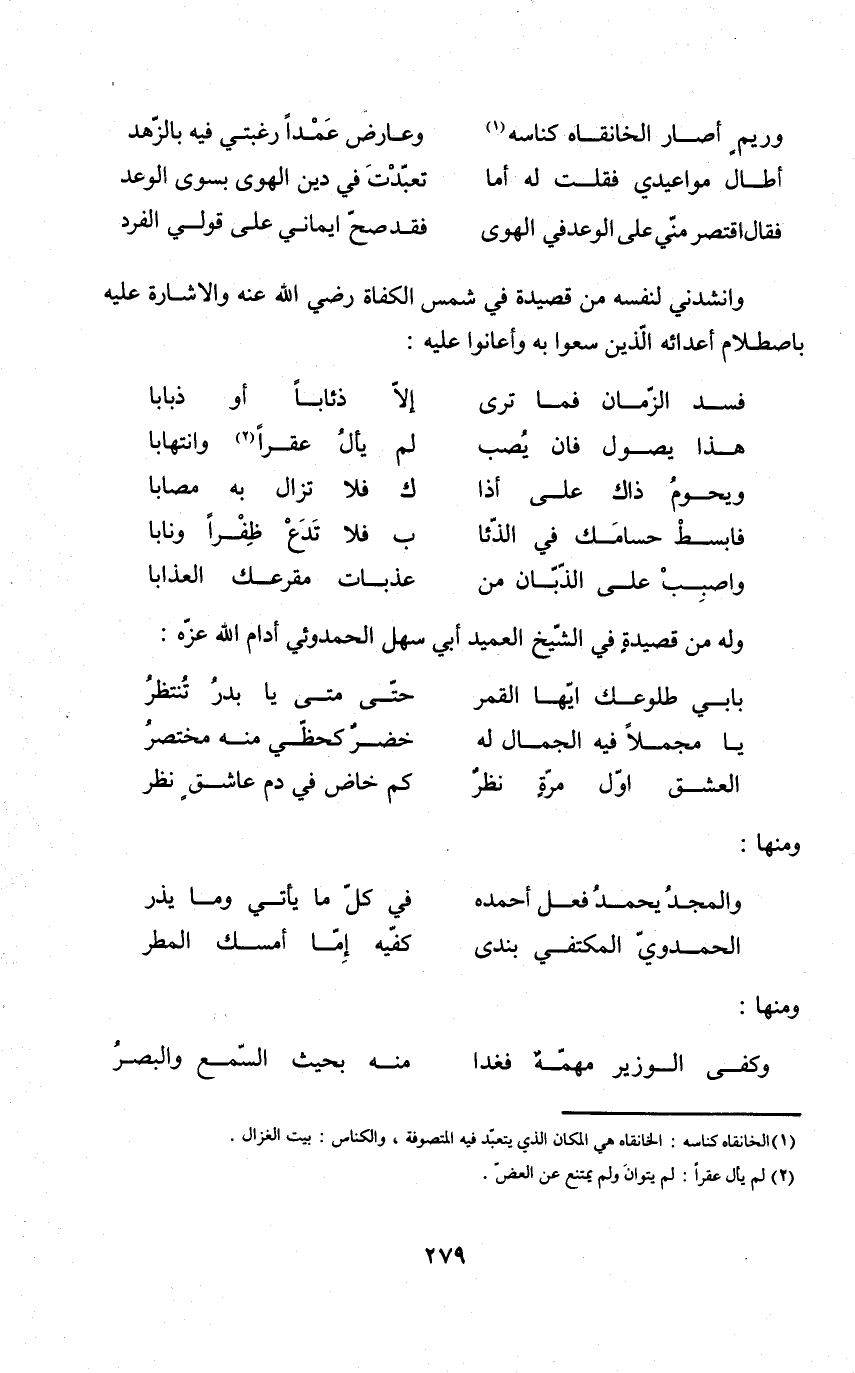 وريمٍ أصار الخانقاه كناسه(١) وعارض عَمْداً رغبتي فيه بالزّهد
أطال مواعيدي فقلت له أما تعبّدْتَ في دين الهوى بسوى الوعد
فقال اقتصر منّي على الوعد في الهوى فقد صحّ ايماني على قولي الفرد
وانشدني لنفسه من قصيدة في شمس الكفاة رضي الله عنه والاشارة عليه
باصطلام أعدائه الّذين سعوا به وأعانوا عليه :
فسد الزّمان فما ترى إلاّ ذئاباً أو ذبابا
هذا يصول فان يُصب لم يألُ عقراً(٢) وانتهابا
ويحومُ ذاك على أذا ك فلا تزال به مصابا
فابسطْ حسامَك في الذّئا ب فلا تَدَعْ ظِفْراً ونابا
واصبِبْ على الذّبّان من عذبات مقرعك العذابا
وله من قصيدةٍ في الشّيخ العميد أبي سهل الحمدوئي أدام الله عزّه :
بابي طلوعك ايّها القمر حتّى متى يا بدرُ تُنتظرُ
يا مجملاً فيه الجمال له خضرٌ كحظّي منه مختصرُ
العشق اوّل مرّةٍ نظرٌ كم خاض في دم عاشقٍ نظر
ومنها :
والمجدُ يحمدُ فعل أحمده في كلّ ما يأتي وما يذر
الحمدويّ المكتفي بندى كفّيه إمّا أمسك المطر
ومنها :
وكفى الوزير مهمّةٌ فغدا منه بحيث السّمع والبصرُ
(١) الخانقاه كناسه : الخانقاه هي المكان الذي يتعبّد فيه المتصوفة ، والكناس : بيت الغزال .
(٢) لم يأل عقراً : لم يتوانَ ولم يمتنع عن العضّ .
٢٧٩